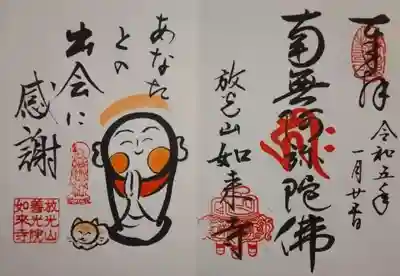 奉拝
令和五年
南無阿彌陀佛
放光山如来寺
あなた
との
出会に
感謝
放光山
善光院
如来寺